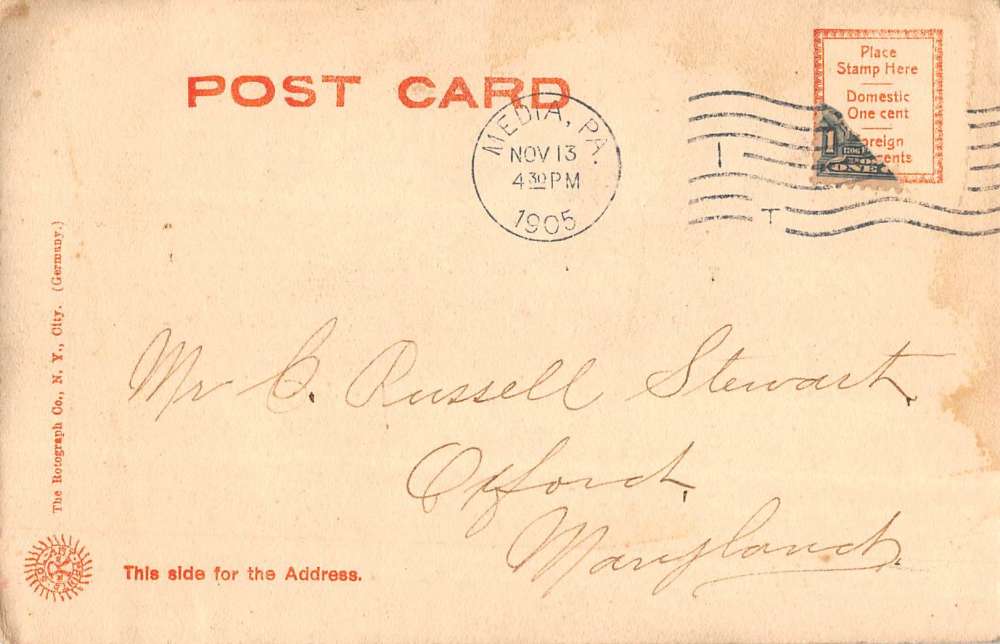 POST CARD
Place
Stamp Here
Domestic
One cent
oreign
cents
1
ONE
MEDIA, PA.
NOV 13
4 30 PM
1905
The Rotograph Co., N. Y., City. (Germany.)
Mr C. Russell Stewart
Oxford,
Maryland.
This side for the Address.